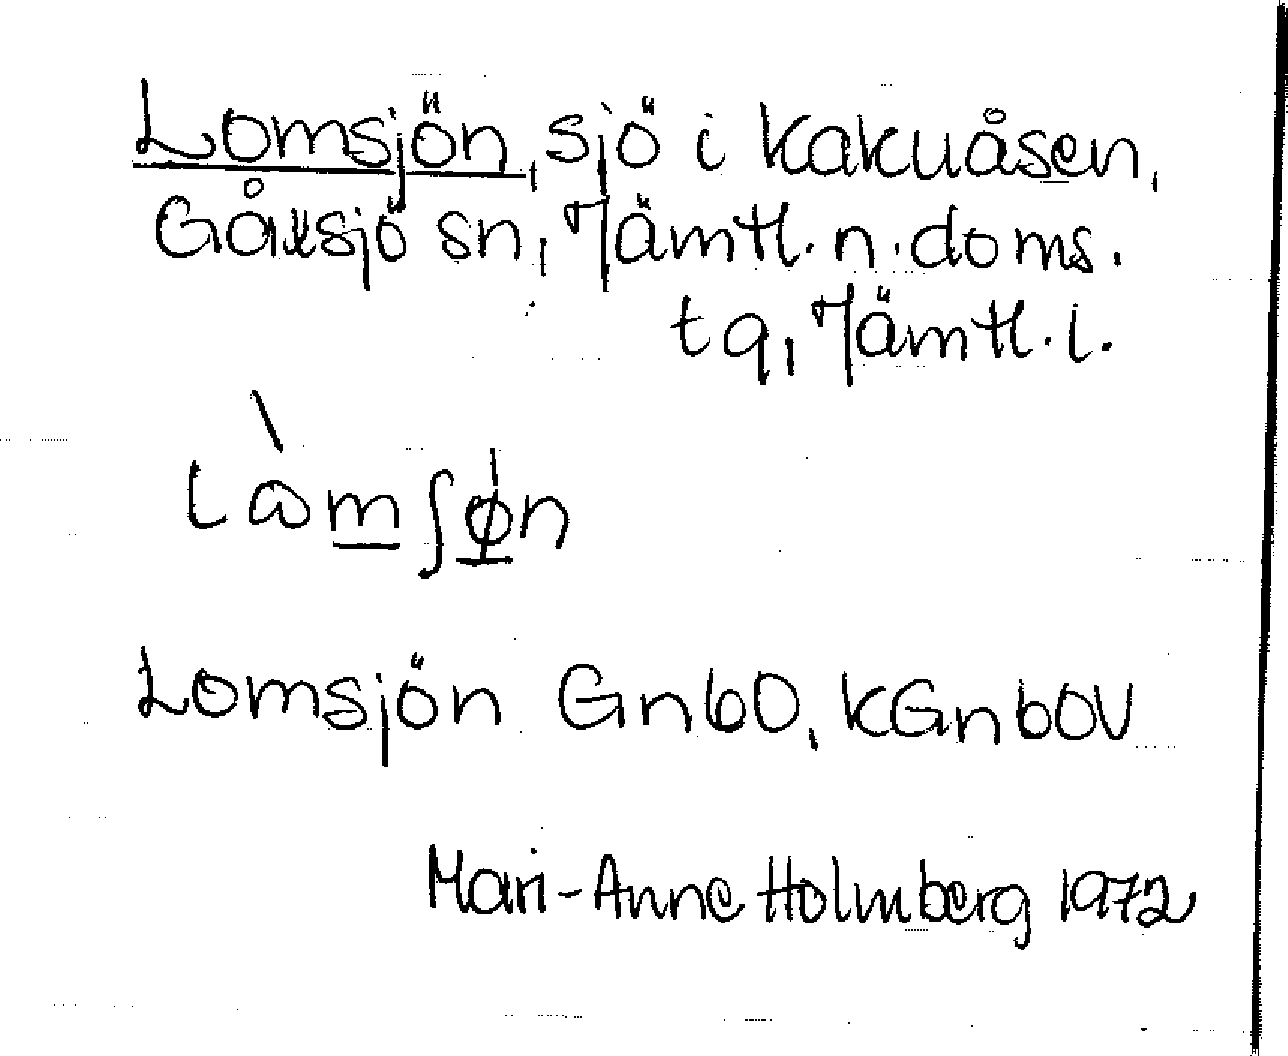 Lomsjön, sjö i Kakuåsen,
Gåxsjö sn, Jämtl. n. doms.
tg, Jämtl. l.
lɷ̀mʃøn
Lomsjön GnbO, KGnbOV
Mari-Anne Holmberg 1972